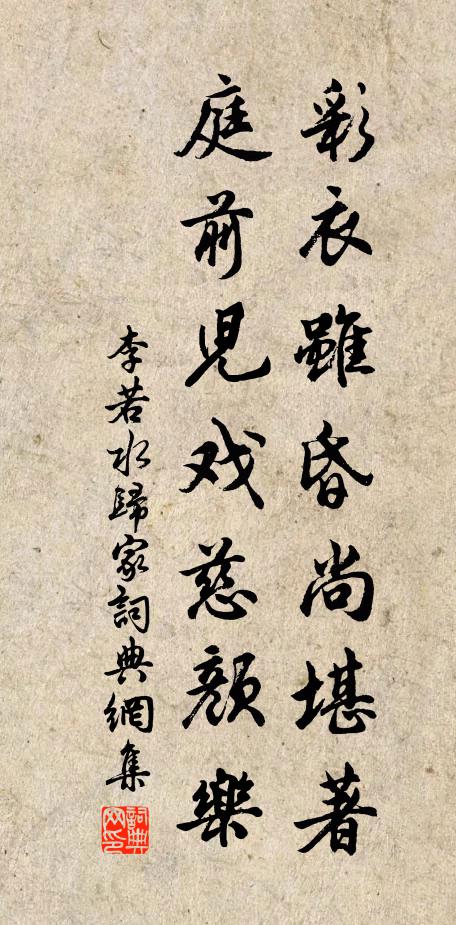 彩衣雖昏尚堪著
庭前児戏慈顏樂
李若水歸家詞典網集
詞典网印